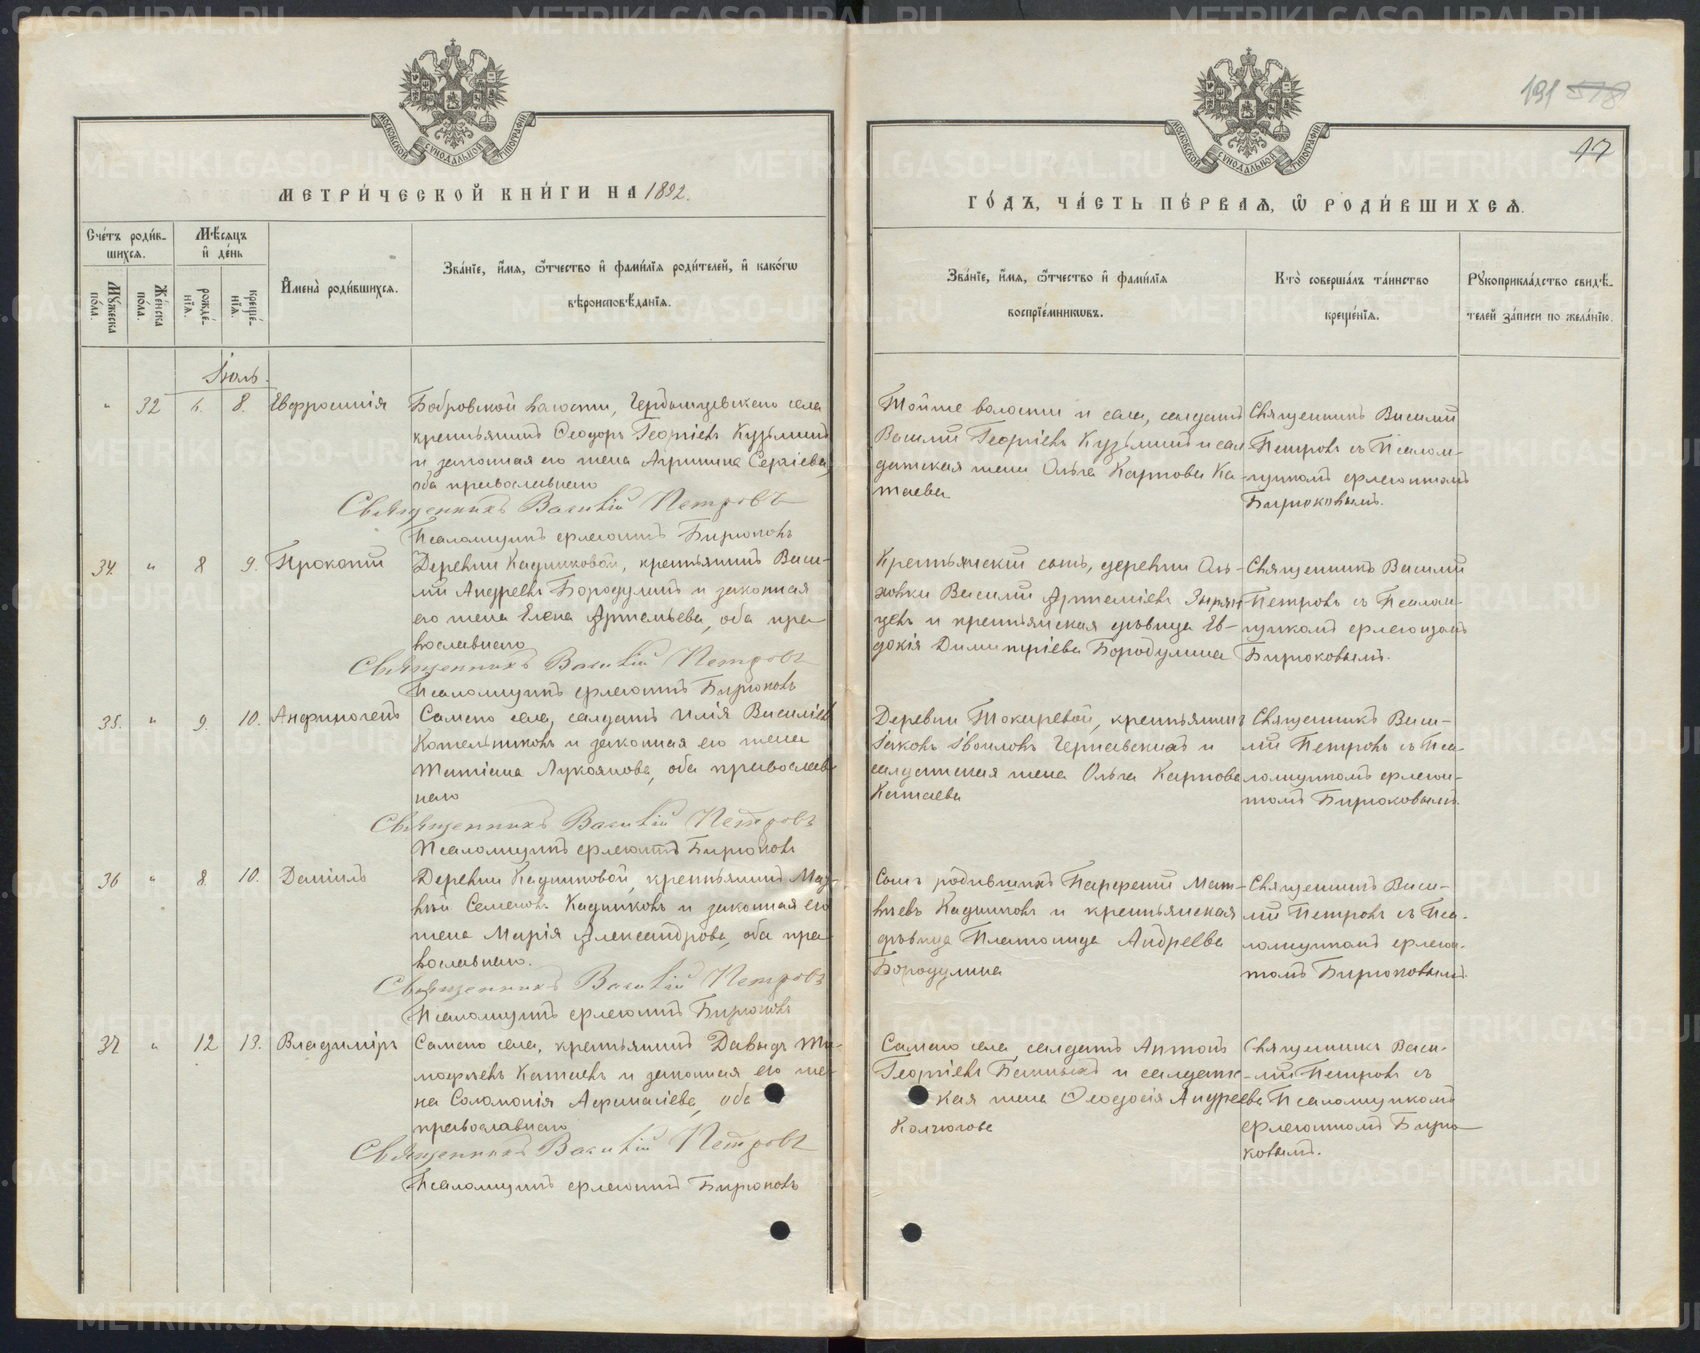 191 578
17
МОСКОВСКОЙ СѴНОДАЛЬНОЙ ТИПОГРАФІИ
МОСКОВСКОЙ СѴНОДАЛЬНОЙ ТИПОГРАФІИ
МЕТРИ́ЧЕСКОЙ КНИ́ГИ НА 1892.
ГО́ДЪ, ЧА́СТЬ ПЕ́РВАѦ, Ѡ҆ РОДИ́ВШИХСѦ.
Сче́тъ роди́в-
шихсѧ.
Мꙋ́жеска
по́ла.
Же́нска
по́ла.
Мѣ́сѧцъ
и҆ де́нь
рожде́-
нїѧ.
креще́-
нїѧ.
И҆мена̀ роди́вшихсѧ.
Зва́нїе, и҆́мѧ, ѻ҆́тчество и҆ фами́лїѧ роди́телей, и҆ како́гѡ
вѣроисповѣ́данїѧ.
Зва́нїе, и҆́мѧ, ѻ҆́тчество и҆ фами́лїѧ
воспрїе́мникѡвъ.
Кто̀ соверша́лъ та́инство
креще́нїѧ.
Рꙋкоприкла́дство свидѣ́-
телей за́писи по жела́нїю.
Іюль.
" 32 6. 8. Евфросинія
Бобровской волости, Чердынцевскаго села
крестьянинъ Ѳеодоръ Георгіевъ Кузьминъ
и законная его жена Агрипина Сергіева,
оба православнаго
Священникъ Василій Петровъ
Псаломщикъ Бирюковъ
Тойже волости и села, солдатъ
Василій Георгіевъ Кузьминъ и сол-
датская жена Ольга Карпова Ка-
таева
Священникъ Василій
Петровъ съ Псалом-
щикомъ
Бирюковымъ.
34. " 8 9. Прокопій
Деревни Кадниковой, крестьянинъ Васи-
лій Андреевъ Бородулинъ и законная
его жена Елена Артемьева, оба пра-
вославнаго
Священникъ Василій Петровъ
Псаломщикъ Бирюковъ
Крестьянскій сынъ, деревни Оль-
ховки Василій Артеміевъ Зырян-
цевъ и крестьянская дѣвица Ев-
докія Димитріева Бородулина
Священникъ Василій
Петровъ съ Псалом-
щикомъ
Бирюковымъ.
35. " 9. 10. Анфиногенъ
Самаго села, солдатъ Илія Василіевъ
Котельниковъ и законная его жена
Татіана Лукоянова, оба православ-
наго
Священникъ Василій Петровъ
Псаломщикъ Бирюковъ
Деревни Токаревой, крестьянинъ
Іаковъ и
солдатская жена Ольга Карпова
Катаева
Священникъ Васи-
лій Петровъ съ Пса-
ломщикомъ
Бирюковымъ.
36 " 8. 10. Даніилъ
Деревни Кадниковой, крестьянинъ Мат-
вѣй Семеновъ Кадниковъ и законная его
жена Марія Александрова, оба пра-
вославнаго.
Священникъ Василій Петровъ
Псаломщикъ Бирюковъ
Сынъ родившихъ Парфеній Мат-
вѣевъ Кадниковъ и крестьянская
дѣвица Платонида Андреева
Бородулина
Священникъ Васи-
лій Петровъ съ Пса-
ломщикомъ
Бирюковымъ.
37 " 12 13. Владиміръ
Самаго села, крестьянинъ Давыдъ Ти-
моѳеевъ Катаевъ и законная его же-
на Соломонія Аѳанасіева, оба
православнаго
Священникъ Василій Петровъ
Псаломщикъ Бирюковъ
Самаго села, солдатъ Антонъ
Георгіевъ и солдатс-
кая жена Ѳеодосія Андреева
Колчюгова
Священникъ Васи-
лій Петровъ съ
Псаломщикомъ
Бирю-
ковымъ.
METRIKI.GASO-URAL.RU